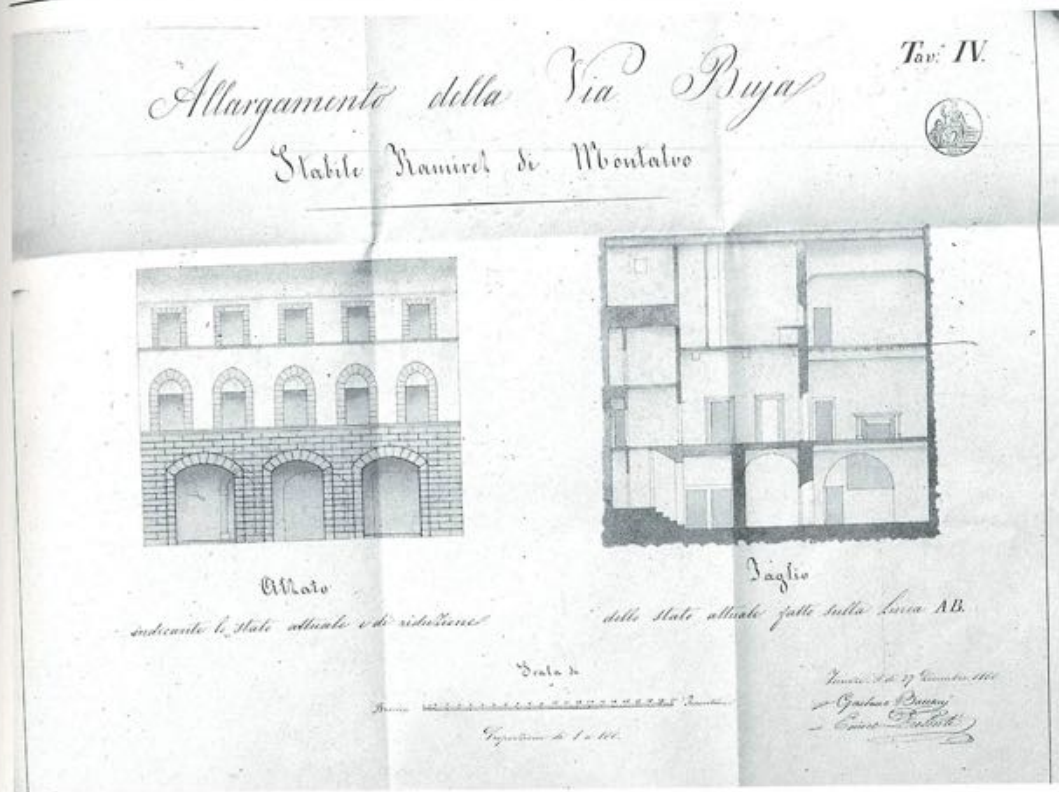 Tav. IV.
Allargamento della Via Buja
Stabile Ramirez di Montalvo
Alzato
indicante lo stato attuale e di riduzione
Taglio
dello stato attuale fatto sulla Linea AB.
Scala di
Braccia
Proporzione di 1 a 100.
27 Dicembre
Gaetano